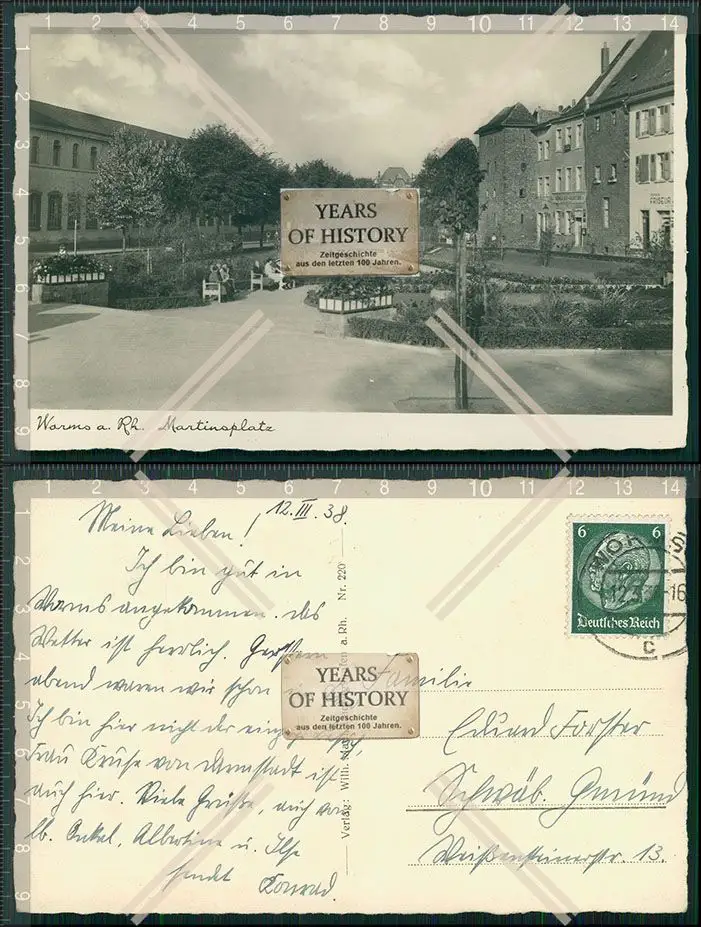 1 2 3 4 5 6 7 8 9 10 11 12 13 14
1
2
3
4
5
6
7
8
9
YEARS
OF HISTORY
Zeitgeschichte
aus den letzten 100 Jahren.
FRISEUR
Worms a. Rh. Martinsplatz
1 2 3 4 5 6 7 8 9 10 11 12 13 14
1
2
3
4
5
6
7
8
9
12.III.38.
Meine Lieben!
Ich bin gut in
Worms angekommen. Das
Wetter ist herrlich. Gestern
abend waren wir schon
Ich bin hier nicht der
Frau Kruse von Darmstadt ist
auch hier. Viele Grüße, auch von
lb. Onkel, Albertine u. Ilse
sendet Konrad.
Verlag: Willi. a. Rh. Nr. 220
YEARS
OF HISTORY
Zeitgeschichte
aus den letzten 100 Jahren.
6 6
Deutsches Reich
WO
C
Familie
Eduard Forster
Schwäb. Gmünd
Weißensteinerstr. 13.